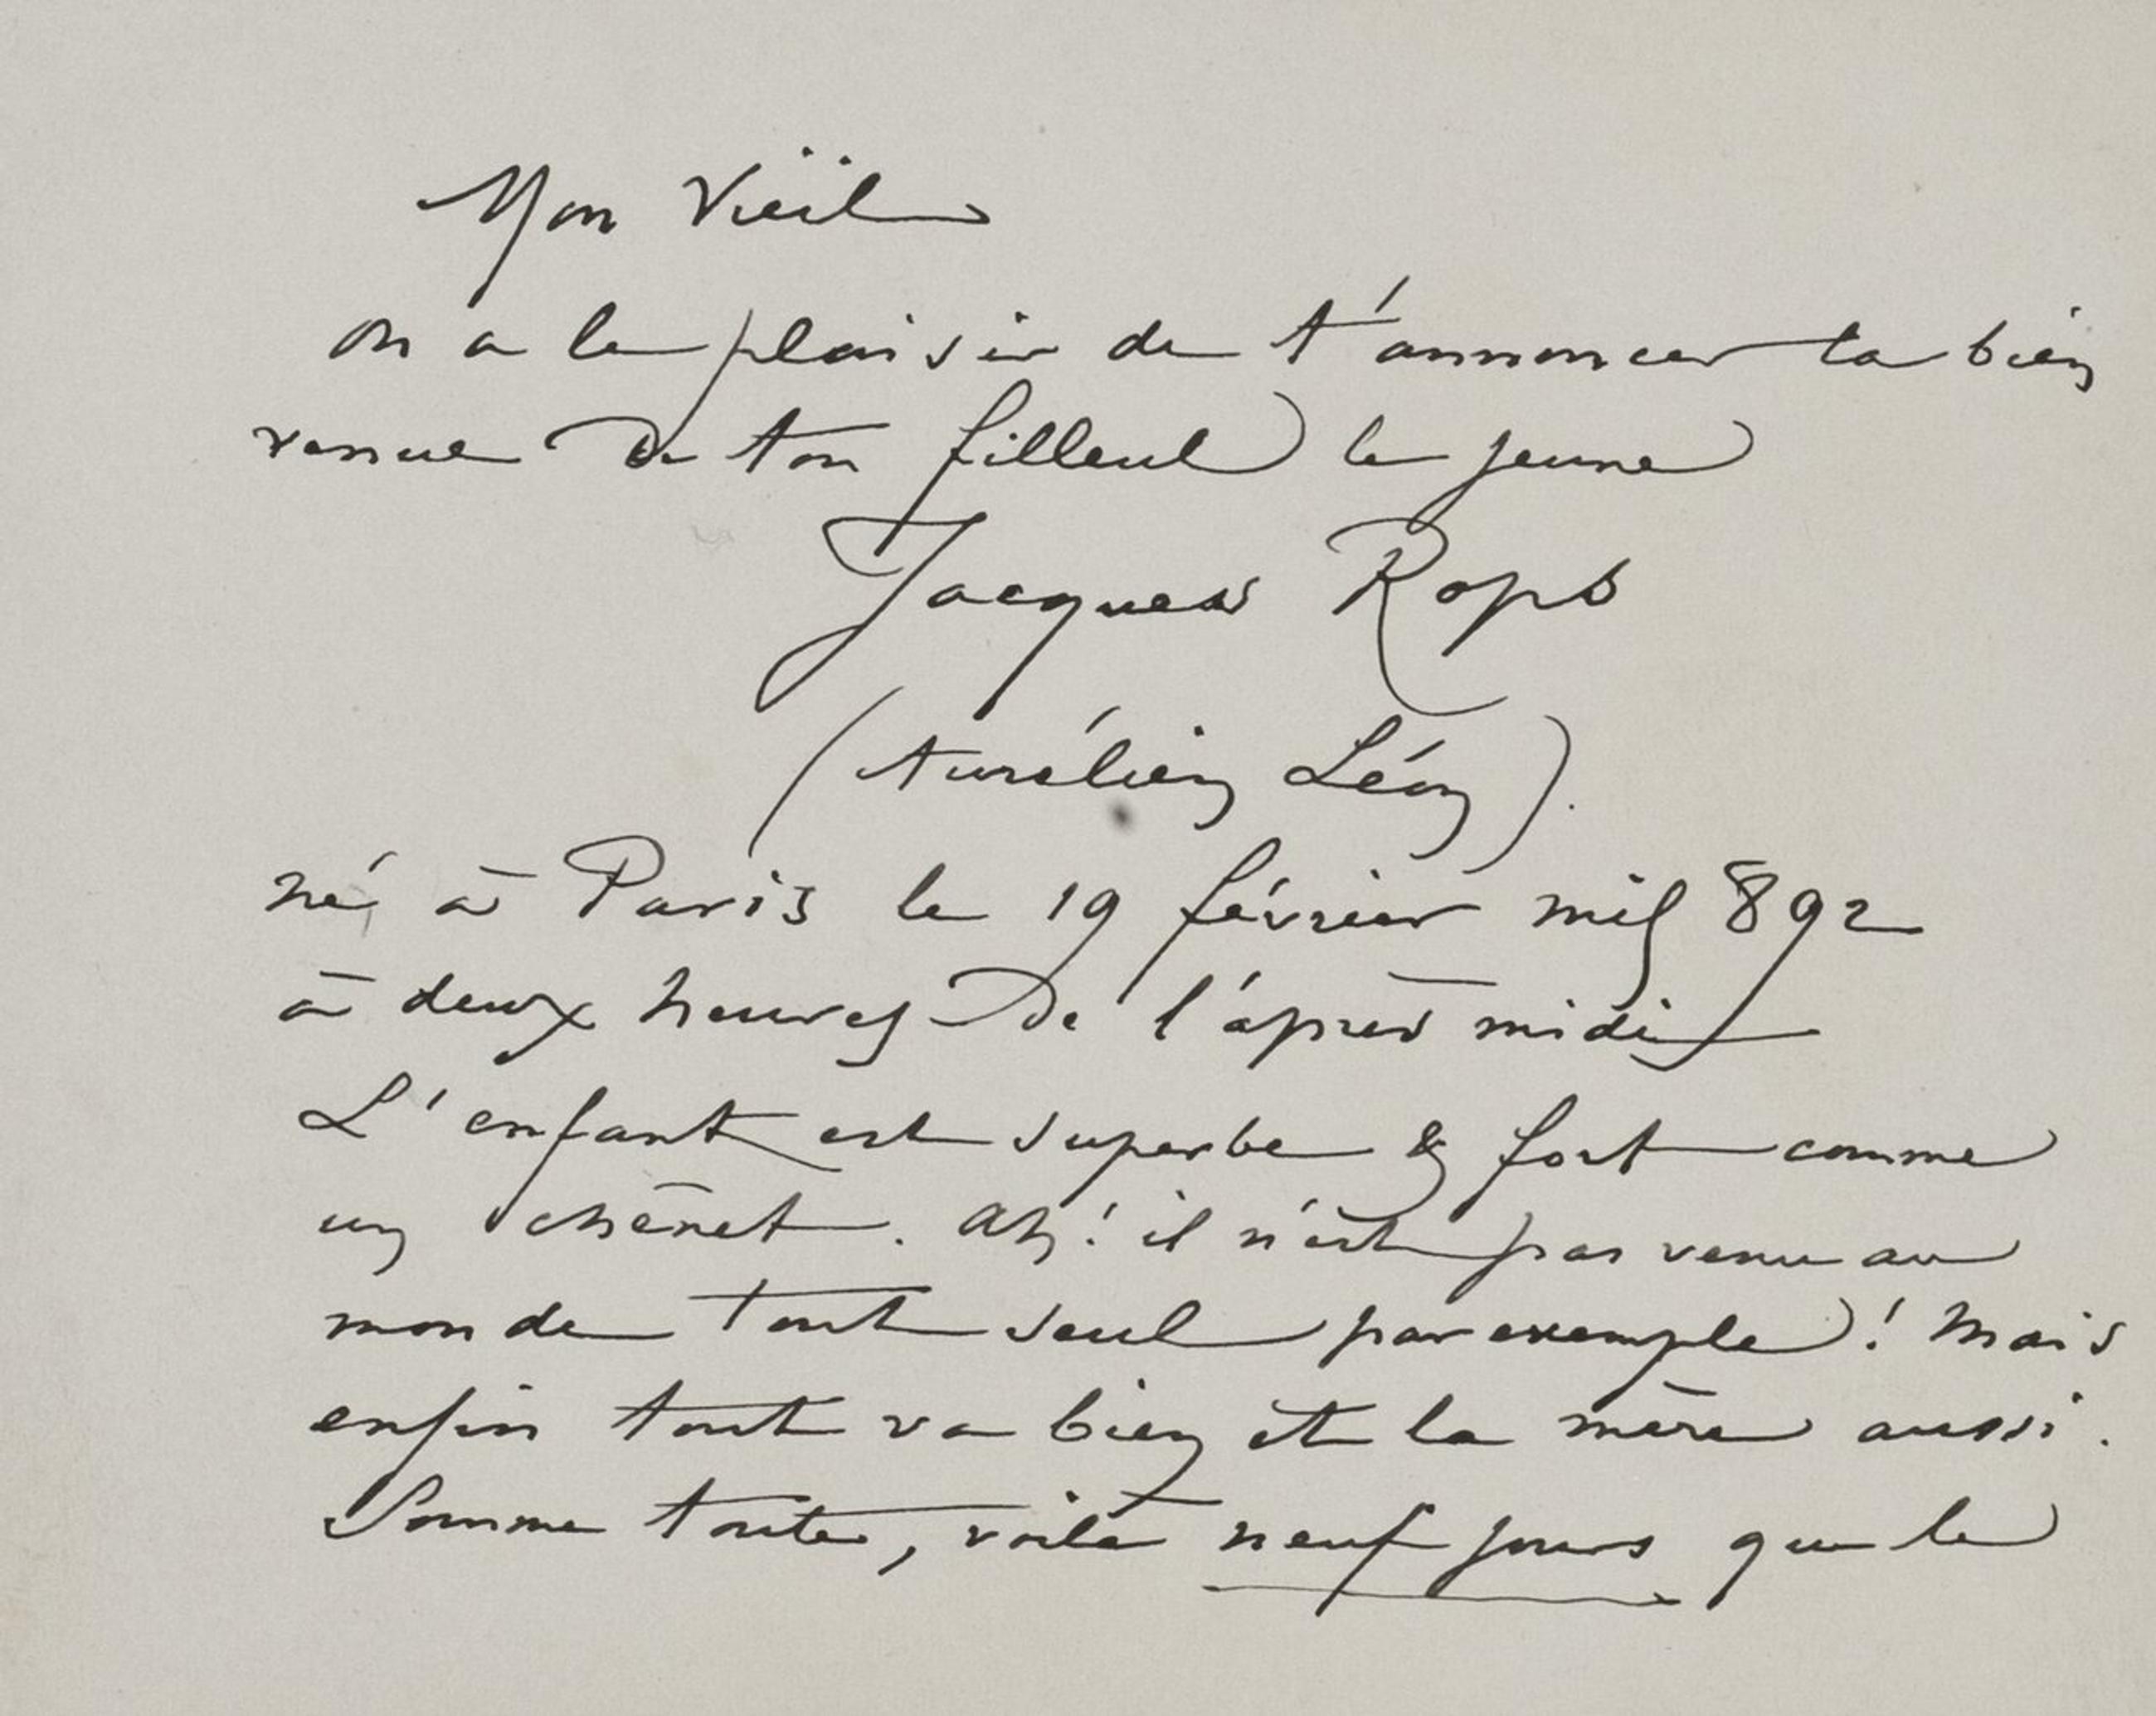 Mon Vieil
on a le plaisir de t'annoncer la bien
venue de ton filleul le jeune
Jacques Rops
(Aurélien Léon).
né à Paris le 19 février mil 892
à deux heures de l'après midi
L'enfant est superbe & fort comme
un chênet. Ah! il n'est pas venu au
monde tout seul par exemple! Mais
enfin tout va bien et la mère aussi.
Somme toute, voilà neuf jours que le